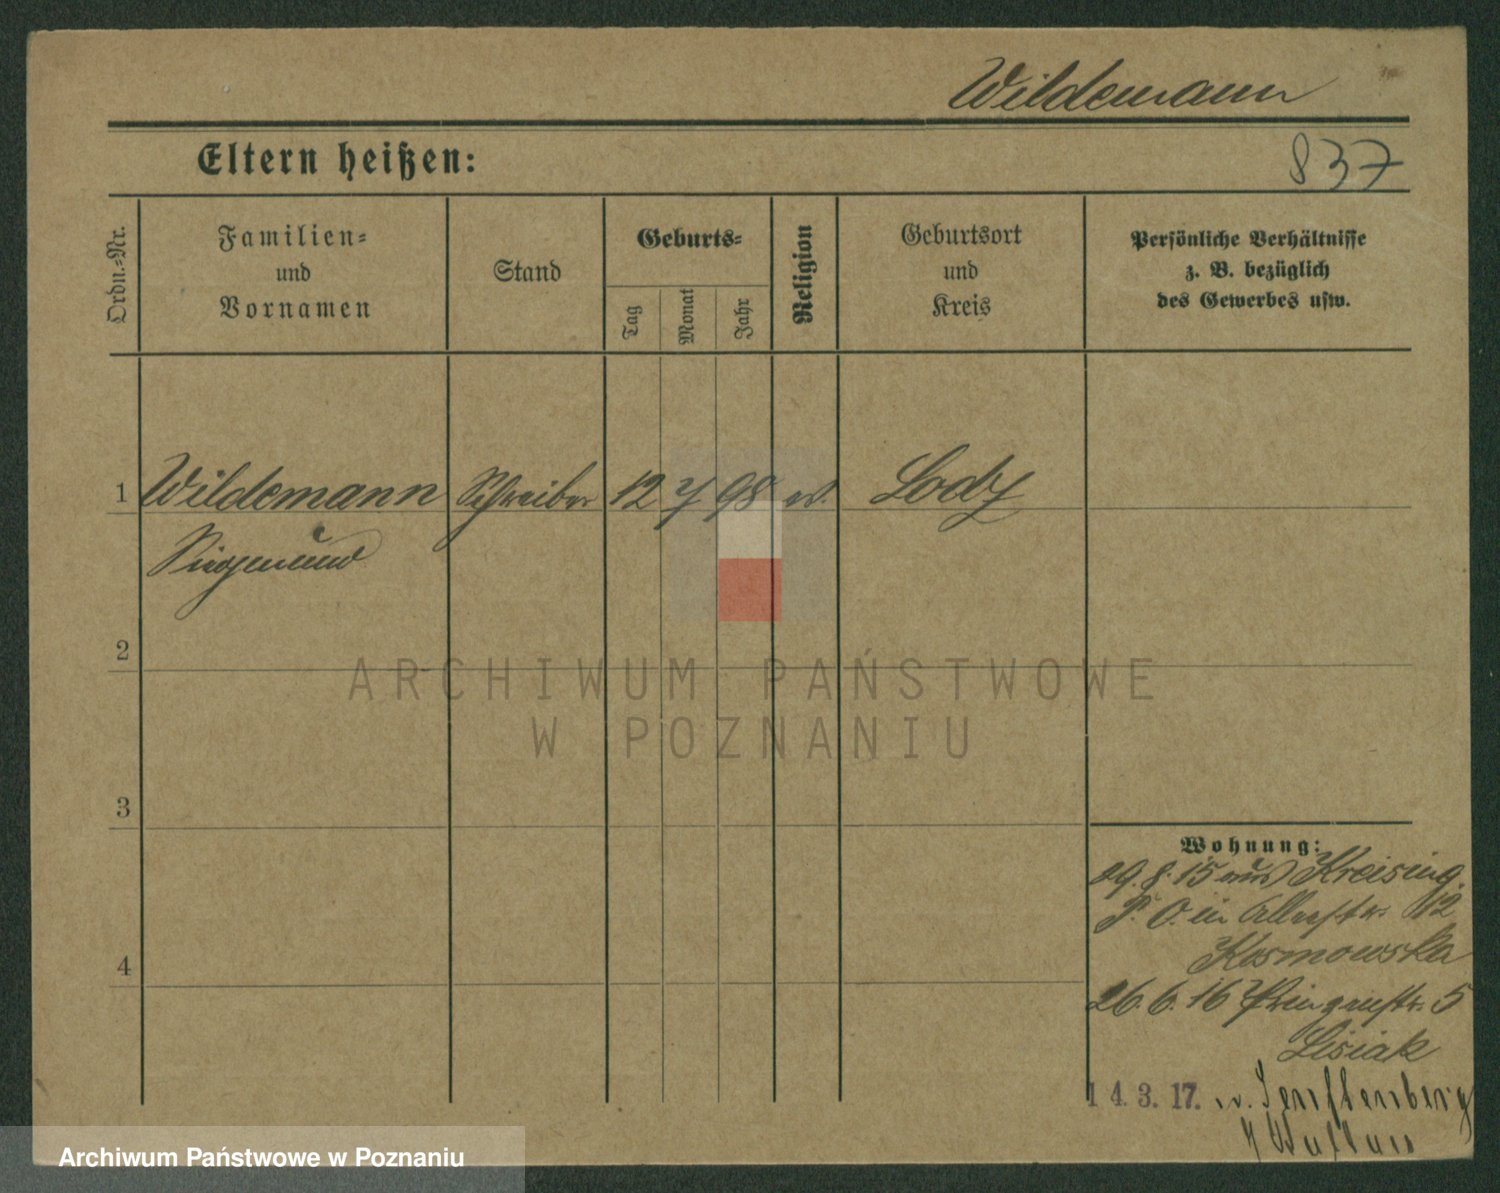 Wildemann
Eltern heißen:
837
Ordn.=Nr.
Familien=
und
Vornamen
Stand
Geburts=
Tag
Monat
Jahr
Religion
Geburtsort
und
Kreis
Persönliche Verhältnisse
z. B. bezüglich
des Gewerbes usw.
1 Wildemann Schreiber 12 7 98 ev. Lodz
Siegmund
2
ARCHIWUM PAŃSTWOWE
W POZNANIU
3
Wohnung:
29.8.15 aus Kreising
P. O. in 12
Kosmowska
4
26.6.16 Prinzenstr. 5
Lisiak
14.3.17. n. Senftenberg
Archiwum Państwowe w Poznaniu